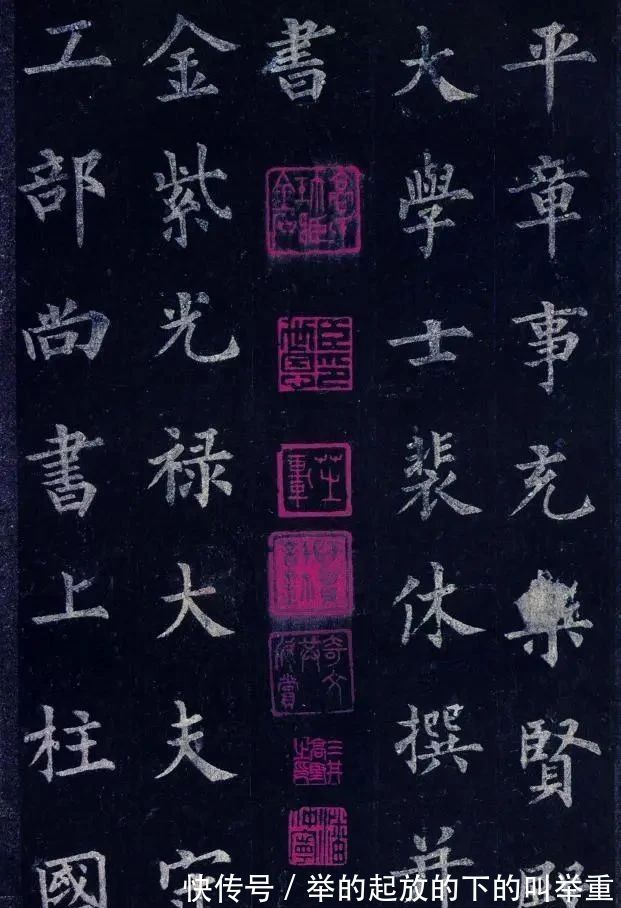 平章事充集賢殿
大學士裴休撰并
書
金紫光禄大夫守
工部尚書上柱國
快传号 / 举的起放的下的叫举重